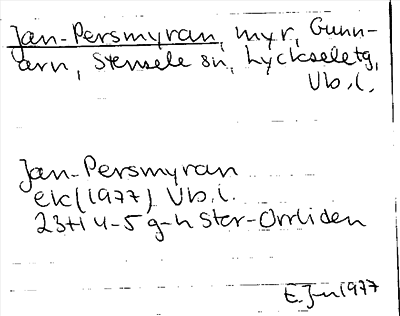 Jan-Persmyran, myr, Gunn-
arn, Stensele sn, Lyckseletg,
Vb.l.
Jan-Persmyran
ek(1977) Vb.l.
23H 4-5 g-h Stor-Orrliden
E.Jn 1977